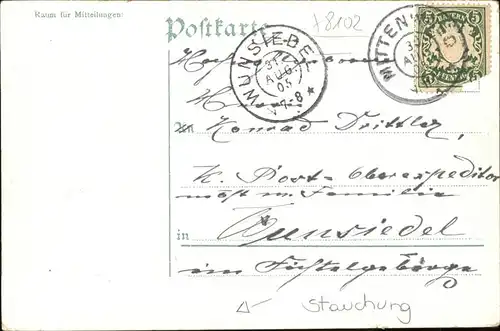 Raum für Mitteilungen:
Postkarte
+8102
WUNSIEDEL
31
AUG
05
7-8
MITTEN
BAYERN
5 5
An
Herrn
Konrad Drittler
K. Post-Oberexpeditor
in Wunsiedel
im Fichtelgebirge
Stauchung